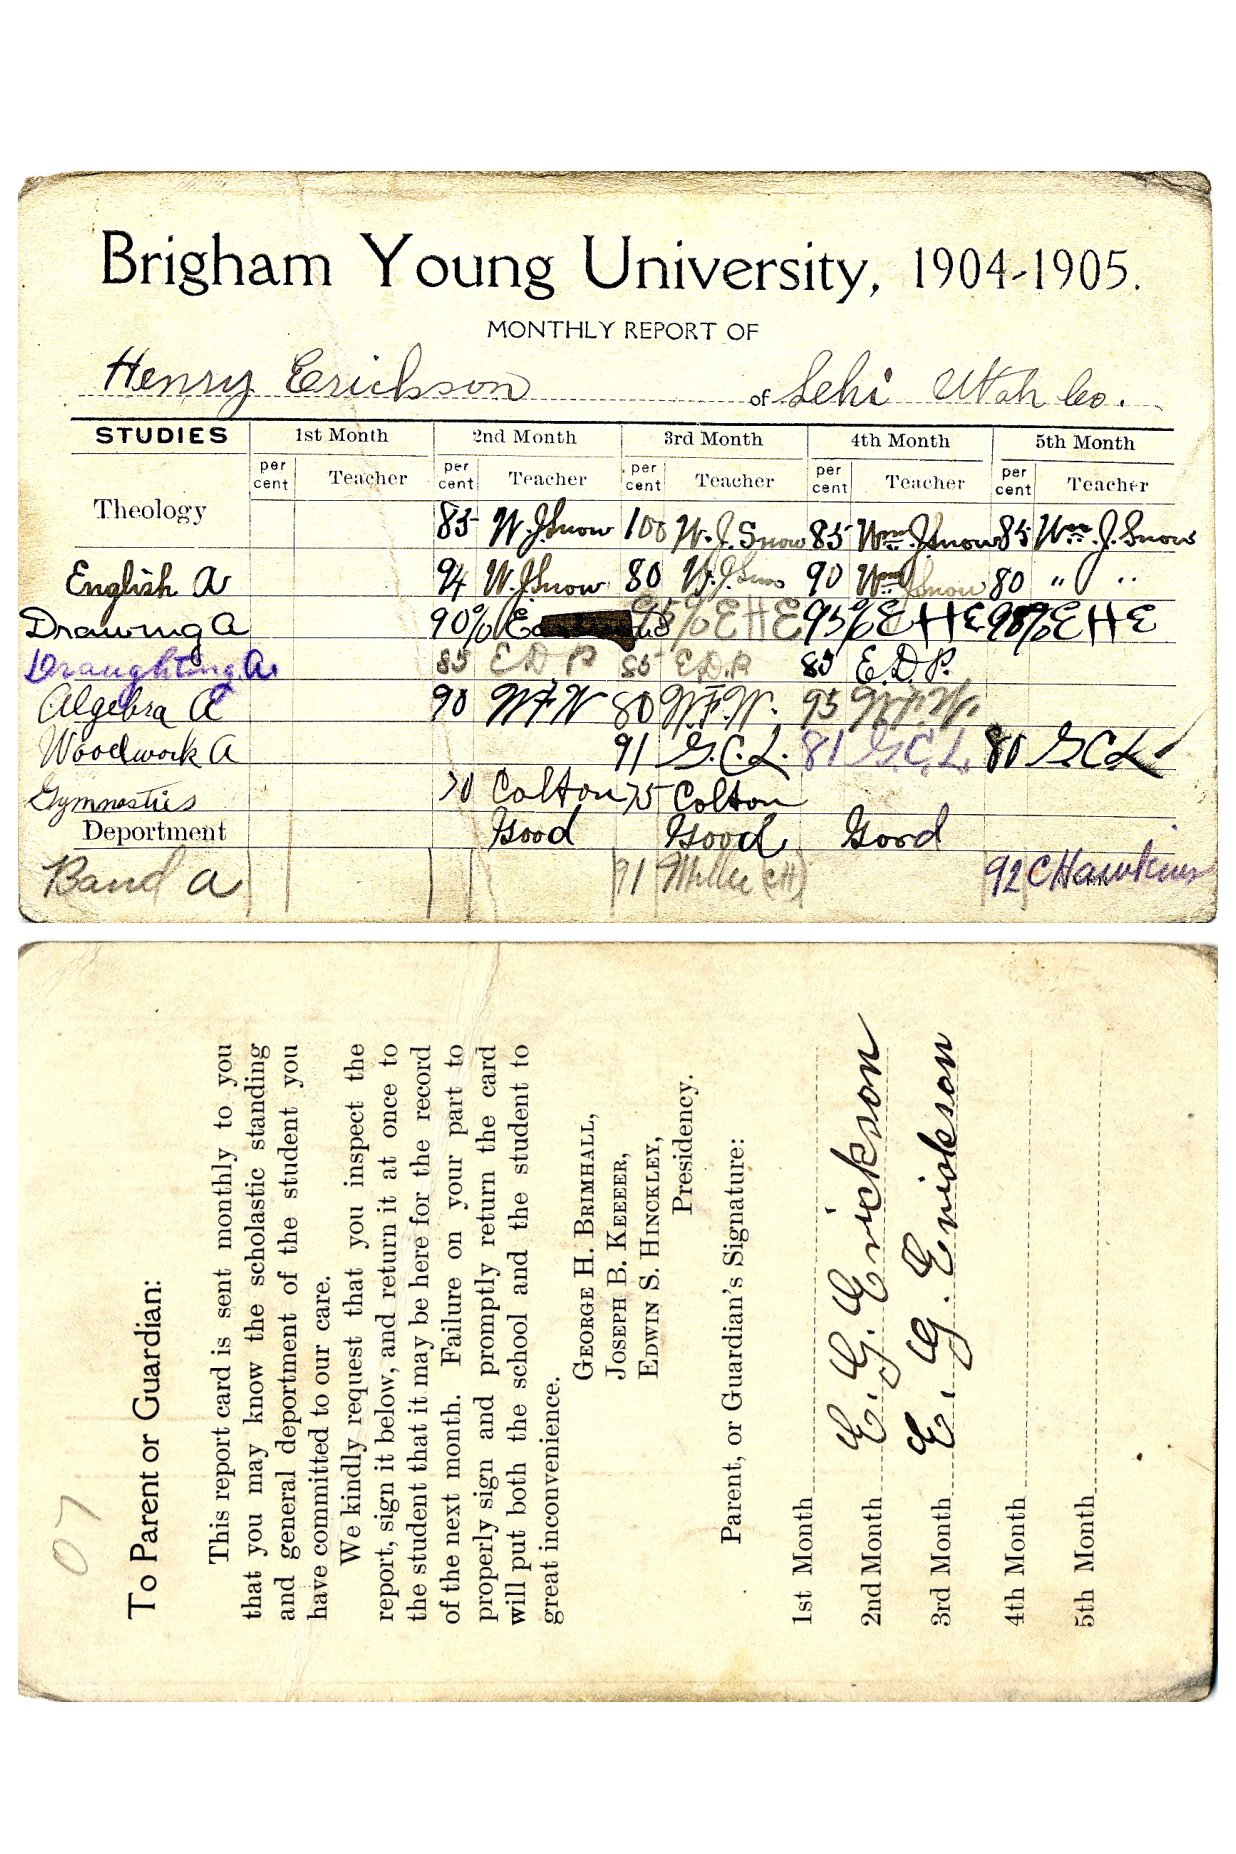 Brigham Young University, 1904-1905.
MONTHLY REPORT OF
Henry Erickson of Lehi Utah Co.
STUDIES 1st Month 2nd Month 3rd Month 4th Month 5th Month
per cent Teacher per cent Teacher per cent Teacher per cent Teacher per cent Teacher
Theology 85 W. J. Snow 100 W. J. Snow 85 Wm. J. Snow 85 Wm. J. Snow
English A 94 W. J. Snow 80 W. J. Snow 90 Wm J Snow 80 " "
Drawing A 90% 95% E H E 95% E H E 98% E H E
Draughting A. 85 E D P 85 E.D.P. 85 E.D.P.
Algebra A 90 W F W 80 W. F. W. 95 W. F. W.
Woodwork A 91 G. C. L. 81 G. C. L. 80 G C L
Gymnastics 70 Colton 75 Colton
Deportment Good Good Good
Band A 91 92 C Hawkins
07
To Parent or Guardian:
This report card is sent monthly to you
that you may know the scholastic standing
and general deportment of the student you
have committed to our care.
We kindly request that you inspect the
report, sign it below, and return it at once to
the student that it may be here for the record
of the next month. Failure on your part to
properly sign and promptly return the card
will put both the school and the student to
great inconvenience.
GEORGE H. BRIMHALL,
JOSEPH B. KEEEER,
EDWIN S. HINCKLEY,
Presidency.
Parent, or Guardian's Signature:
1st Month
2nd Month E. G. Erickson
3rd Month E. G. Erickson
4th Month
5th Month